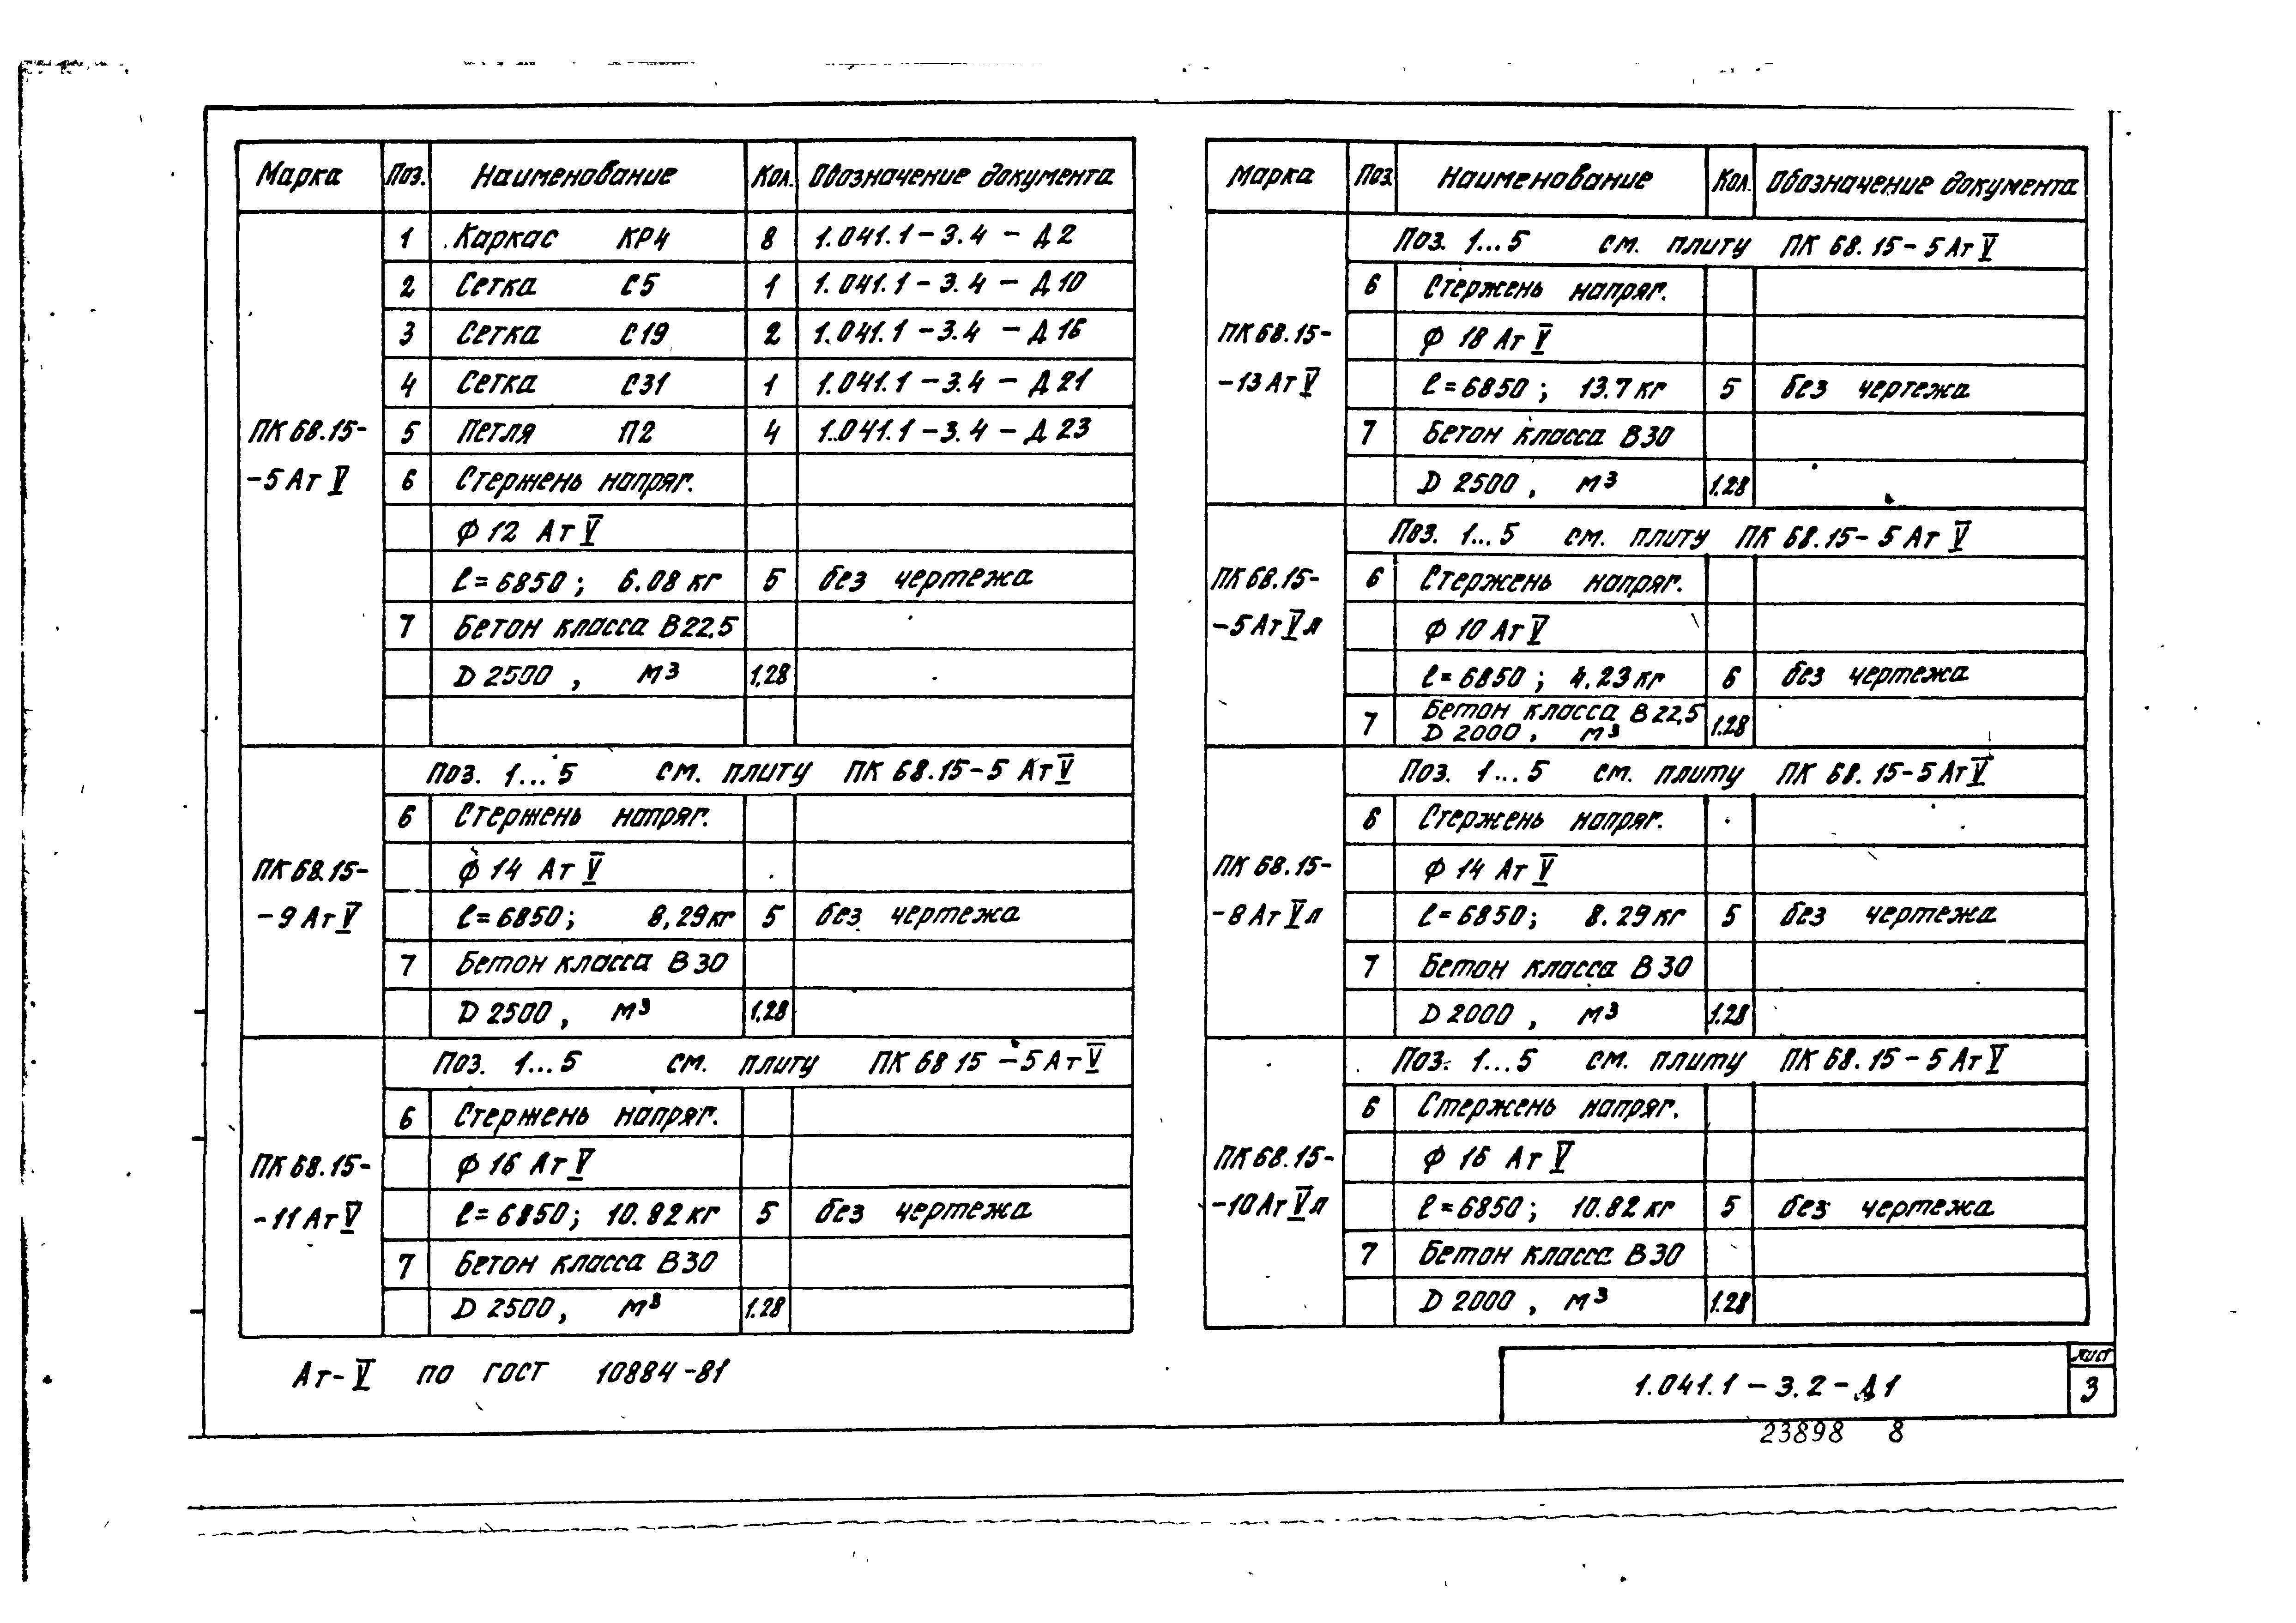 Марка Поз. Наименование Кол. Обозначение документа
1 Каркас КР4 8 1.041.1-3.4-Д2
2 Сетка С5 1 1.041.1-3.4-Д10
3 Сетка С19 2 1.041.1-3.4-Д16
4 Сетка С31 1 1.041.1-3.4-Д21
ПК 68.15- 5 Петля П2 4 1.041.1-3.4-Д23
-5 Ат V 6 Стержень напряг.
Ф 12 Ат V
ℓ=6850; 6.08 кг 5 без чертежа
7 Бетон класса В22,5
D 2500, м3 1.28
Поз. 1...5 см. плиту ПК 68.15-5 Ат V
6 Стержень напряг.
ПК 68.15- Ф 14 Ат V
-9 Ат V ℓ=6850; 8,29 кг 5 без чертежа
7 Бетон класса В30
D 2500, м3 1.28
Поз. 1...5 см. плиту ПК 68 15-5 Ат V
6 Стержень напряг.
ПК 68.15- Ф 16 Ат V
-11 Ат V ℓ=6850; 10.82 кг 5 без чертежа
7 Бетон класса В30
D 2500, м3 1.28
Ат-V по ГОСТ 10884-81
Марка Поз Наименование Кол. Обозначение документа
Поз. 1...5 см. плиту ПК 68.15-5 Ат V
6 Стержень напряг.
ПК 68.15- Ф 18 Ат V
-13 Ат V ℓ=6850; 13.7 кг 5 без чертежа
7 Бетон класса В30
D 2500, м3 1.28
Поз. 1...5 см. плиту ПК 68.15-5 Ат V
ПК 68.15- 6 Стержень напряг.
-5 Ат V л Ф 10 Ат V
ℓ=6850; 4.23 кг 6 без чертежа
7 Бетон класса В22,5
D 2000, м3 1.28
Поз. 1...5 см. плиту ПК 68.15-5 Ат V
6 Стержень напряг.
ПК 68.15- Ф 14 Ат V
-8 Ат V л ℓ=6850; 8.29 кг 5 без чертежа
7 Бетон класса В30
D 2000, м3 1.28
Поз. 1...5 см. плиту ПК 68.15-5 Ат V
6 Стержень напряг.
ПК 68.15- Ф 16 Ат V
-10 Ат V л ℓ=6850; 10.82 кг 5 без чертежа
7 Бетон класса В30
D 2000, м3 1.28
1.041.1-3.2-Д1
Лист
3
23898 8